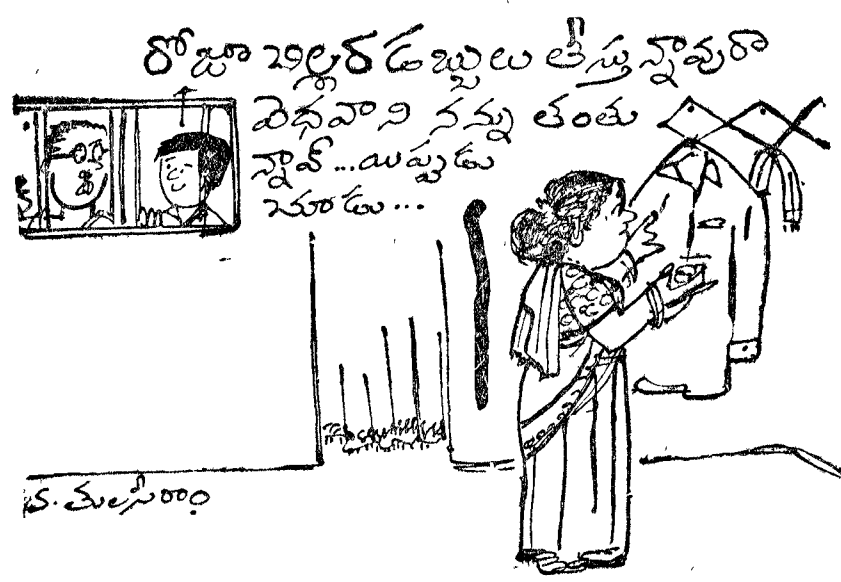 రోజూ చిల్లర డబ్బులు తీస్తున్నావురా
వెధవాని నన్ను తంతు
న్నావ్...యిప్పుడు
చూడు...
వ.తులసీరాం